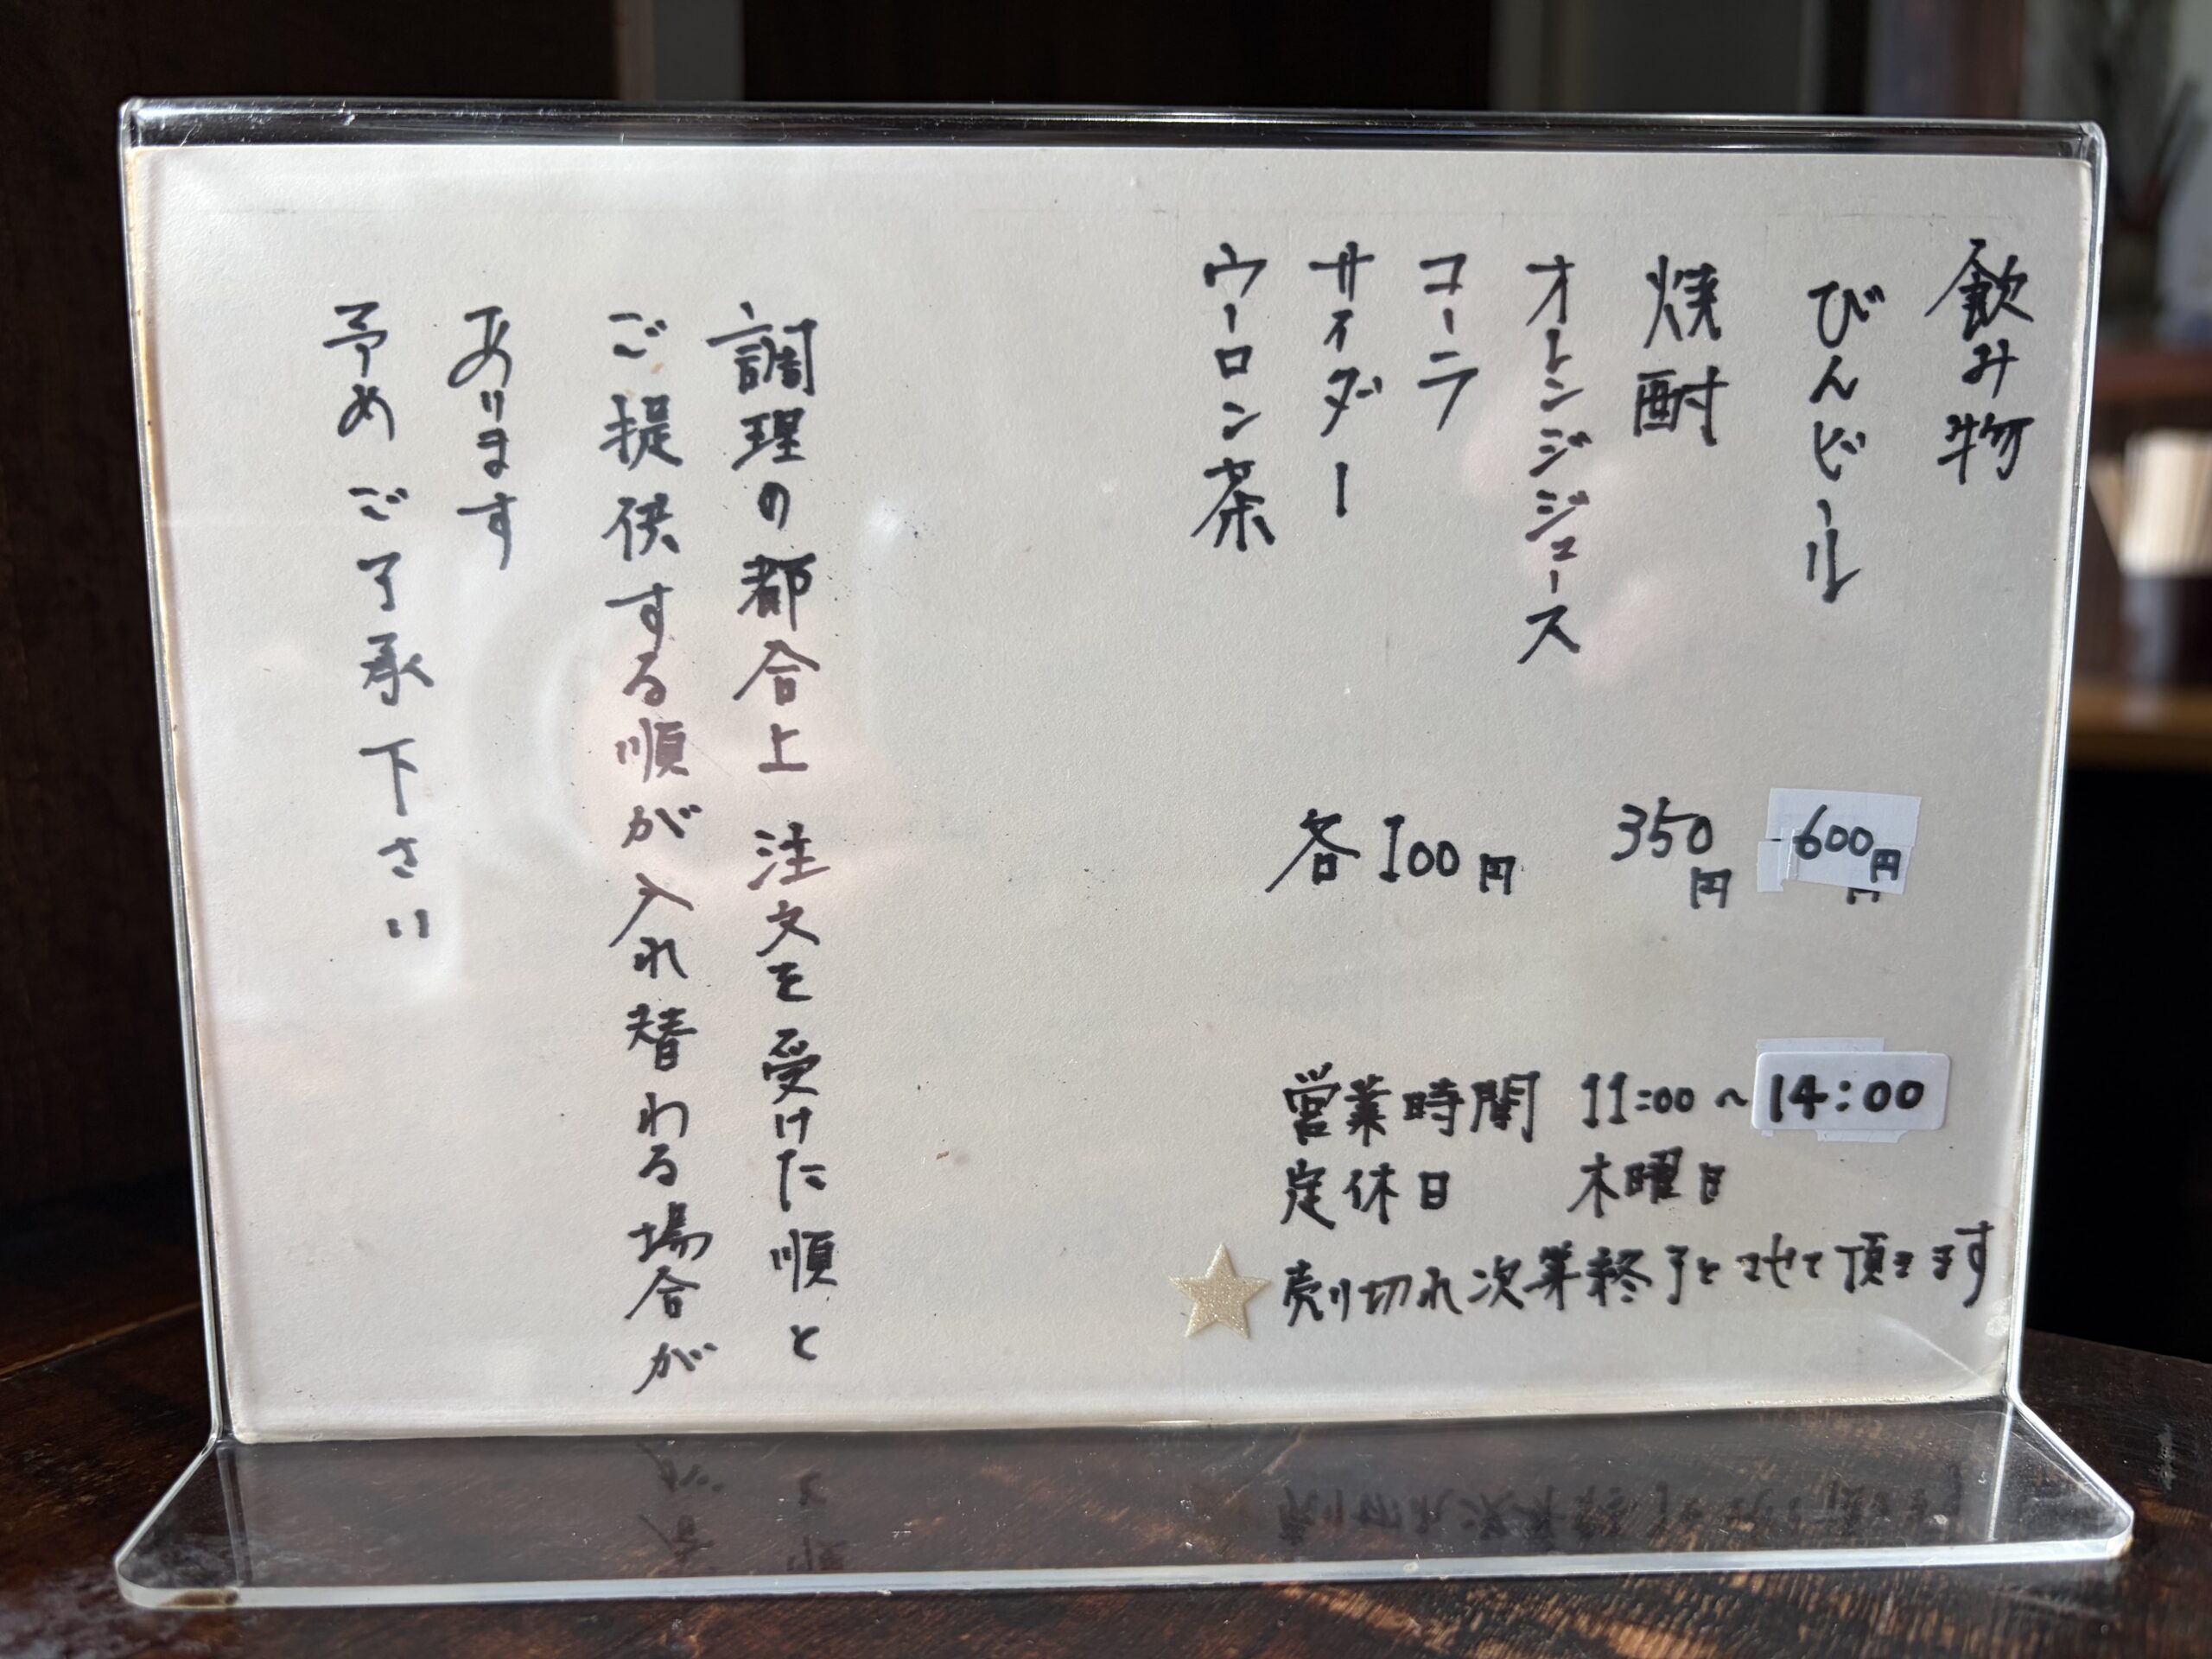 飲み物
びんビール 600円
焼酎 350円
オレンジジュース
コーラ
サイダー
ウーロン茶
各100円
営業時間 11:00~14:00
定休日 木曜日
売り切れ次第終了とさせて頂きます
調理の都合上 注文を受けた順と
ご提供する順が入れ替わる場合が
あります
予めご了承下さい